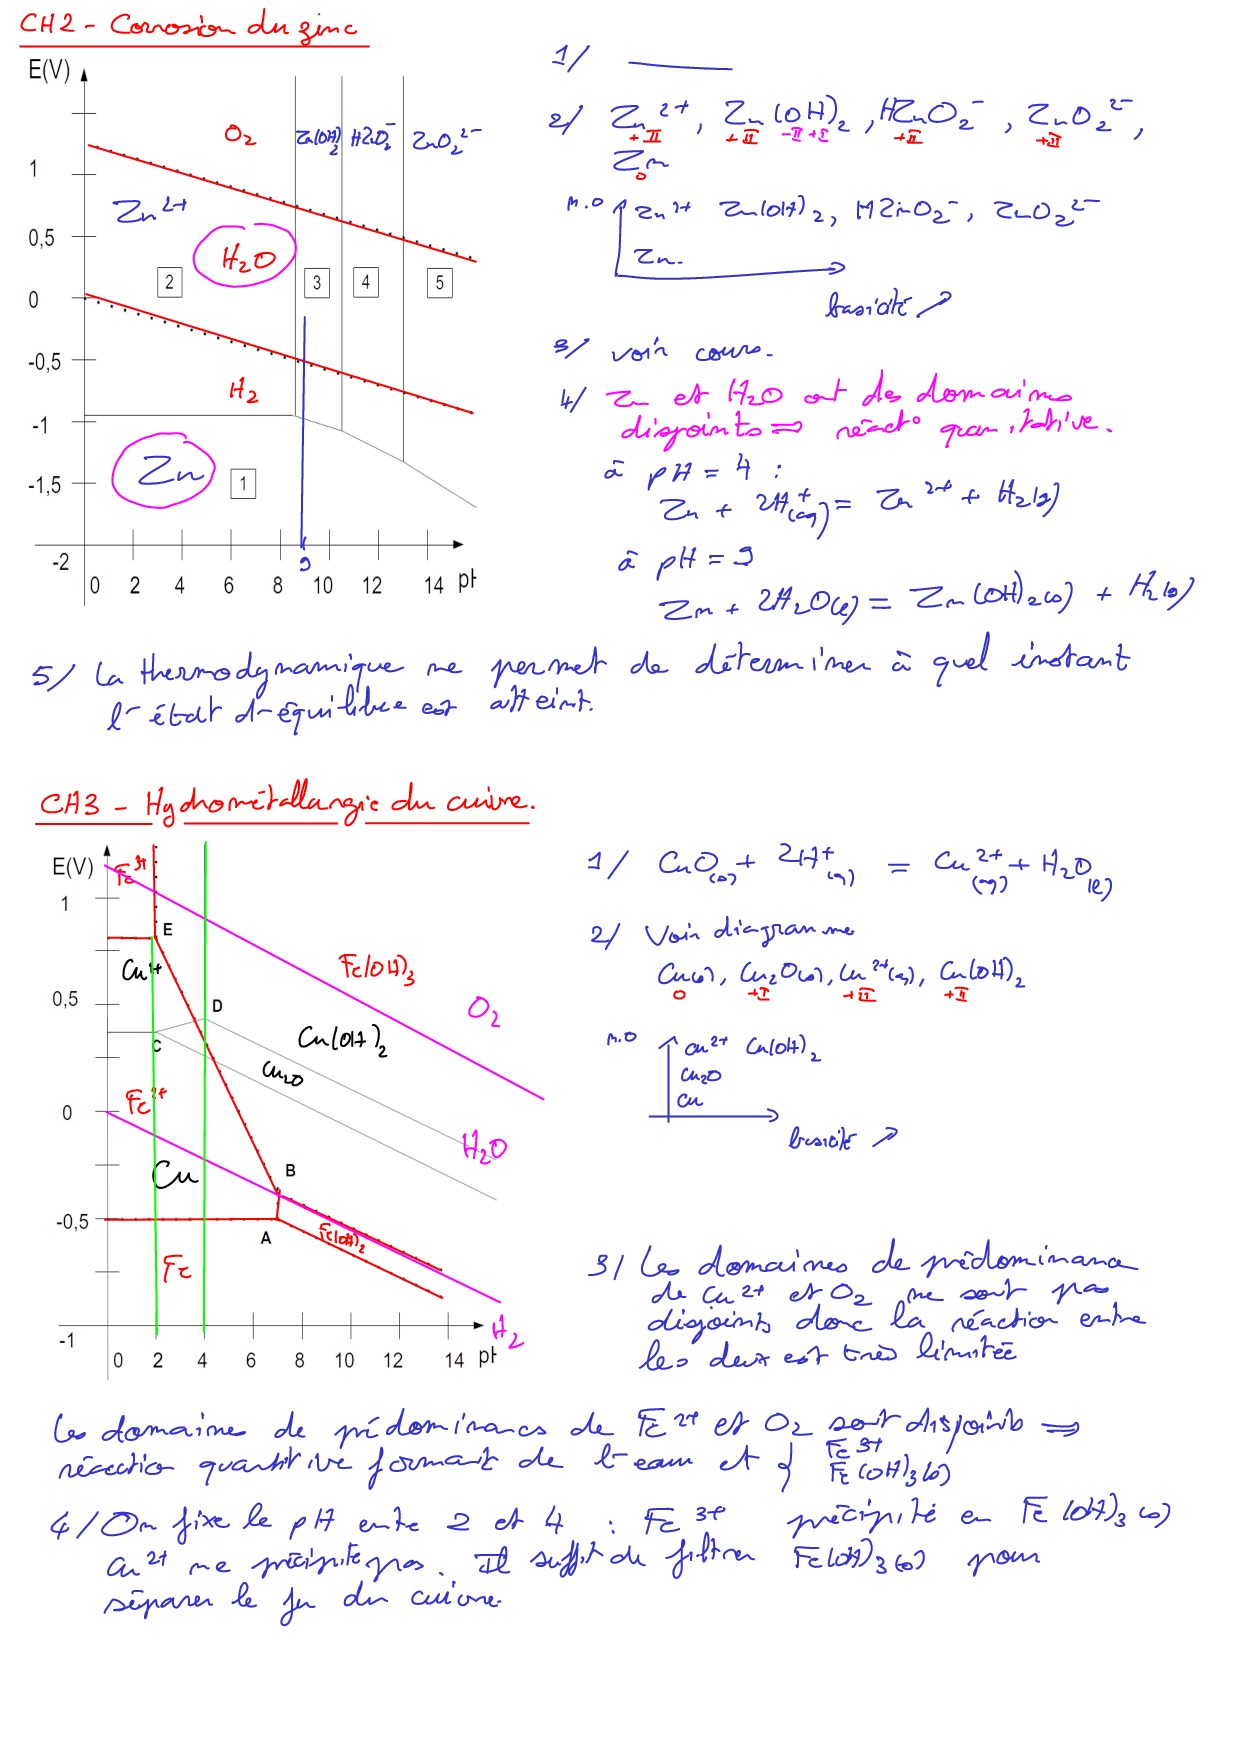 CH2 - Corrosion du zinc
E(V)
1
0,5
0
-0,5
-1
-1,5
-2
0 2 4 6 8 10 12 14 pH
O₂
Zn(OH)₂
HZnO₂⁻
ZnO₂²⁻
Zn²⁺
H₂O
2 3 4 5
H₂
Zn
1
9
1/
2/ Zn²⁺, Zn(OH)₂, HZnO₂⁻, ZnO₂²⁻,
+II +II -II +I +II +II
Zn
0
n.o Zn²⁺ Zn(OH)₂, HZnO₂⁻, ZnO₂²⁻
Zn.
basicité ↗
3/ voir cours.
4/ Zn et H₂O ont des domaines
disjoints ⇒ réact° quantitative.
à pH = 4 :
Zn + 2H⁺(aq) = Zn²⁺ + H₂(g)
à pH = 9
Zn + 2H₂O(l) = Zn(OH)₂(s) + H₂(g)
5/ La thermodynamique ne permet de déterminer à quel instant
l'état d'équilibre est atteint.
CH3 - Hydrométallurgie du cuivre.
E(V)
1
0,5
0
-0,5
-1
0 2 4 6 8 10 12 14 pH
Fe³⁺
E
Cu²⁺
Fe(OH)₃
O₂
D
C
Cu(OH)₂
Cu₂O
Fe²⁺
H₂O
Cu
B
A
Fe(OH)₂
Fe
H₂
1/ CuO(s) + 2H⁺(aq) = Cu²⁺(aq) + H₂O(l)
2/ Voir diagramme
Cu(s), Cu₂O(s), Cu²⁺(aq), Cu(OH)₂
0 +I +II +II
n.o Cu²⁺ Cu(OH)₂
Cu₂O
Cu
basicité ↗
3/ Les domaines de prédominance
de Cu²⁺ et O₂ ne sont pas
disjoints donc la réaction entre
les deux est très limitée
Les domaines de prédominance de Fe²⁺ et O₂ sont disjoints ⇒
réaction quantitive formant de l'eau et { Fe³⁺
Fe(OH)₃(s)
4/ On fixe le pH entre 2 et 4 : Fe³⁺ précipité en Fe(OH)₃(s)
Cu²⁺ ne précipite pas. Il suffit de filtrer Fe(OH)₃(s) pour
séparer le fer du cuivre.